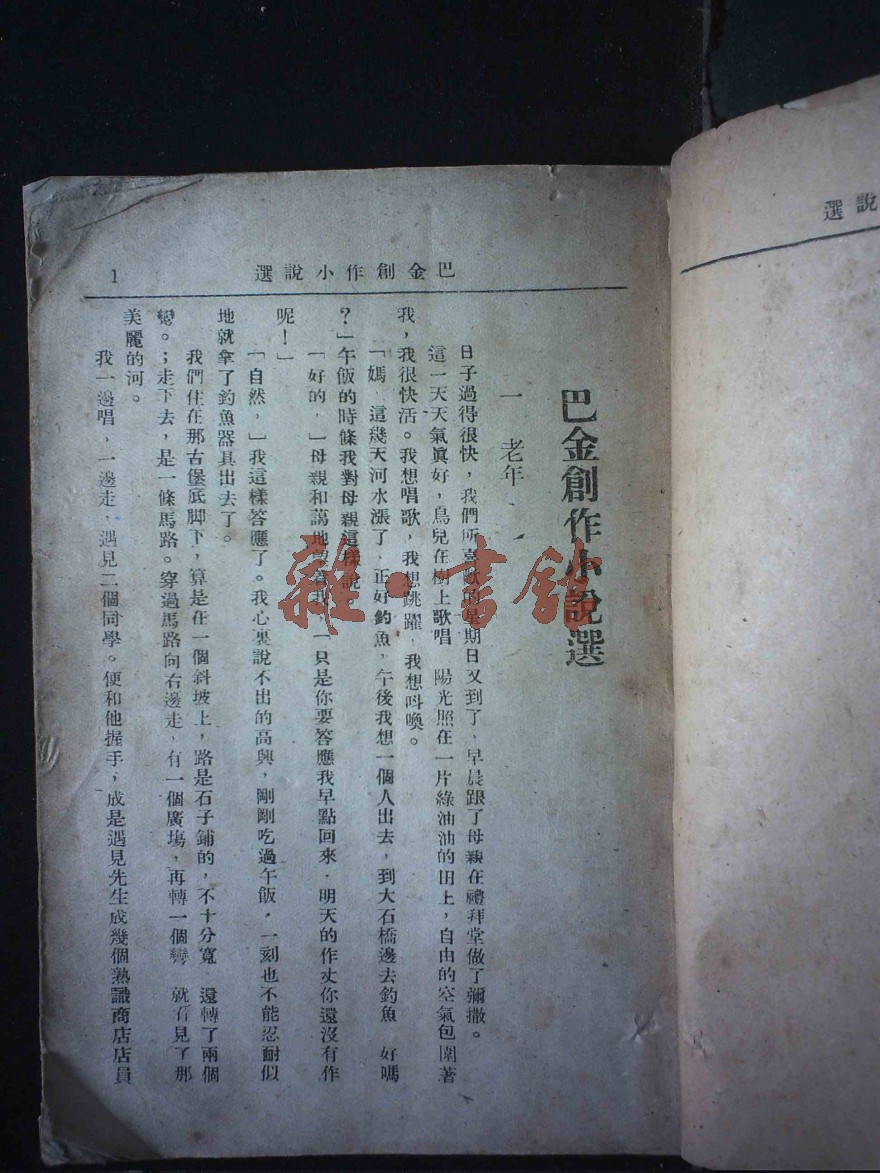 巴金創作小說選
1
巴金創作小說選
一 老年
日子過得很快，我們所喜歡的星期日又到了，早晨跟了母親在禮拜堂做了彌撒。
這一天天氣眞好，鳥兒在樹上歌唱 陽光照在一片綠油油的田上，自由的空氣包圍著
我，我很快活。我想唱歌，我想跳躍，我想呌喚。
「媽，這幾天河水漲了，正好釣魚，午後我想一個人出去，到大石橋邊去釣魚 好嗎
？」午飯的時條我對母親這樣說。
「好的，」母親和藹地望着我，「只是你要答應我早點回來．明天的作文你還沒有作
呢！」
「自然，」我這樣答應了。我心裏說不出的高興，剛剛吃過午飯，一刻也不能忍耐似
地就拿了釣魚器具出去了。
我們住在那古堡底脚下，算是在一個斜坡上，路是石子鋪的，不十分寬 還轉了兩個
彎。；走下去，是一條馬路。穿過馬路向右邊走，有一個廣塲，再轉一個彎 就看見了那
美麗的河。
我一邊唱，一邊走，遇見二個同學。便和他握手，成是遇見先生成幾個熟識商店店員
說選
雜·書館